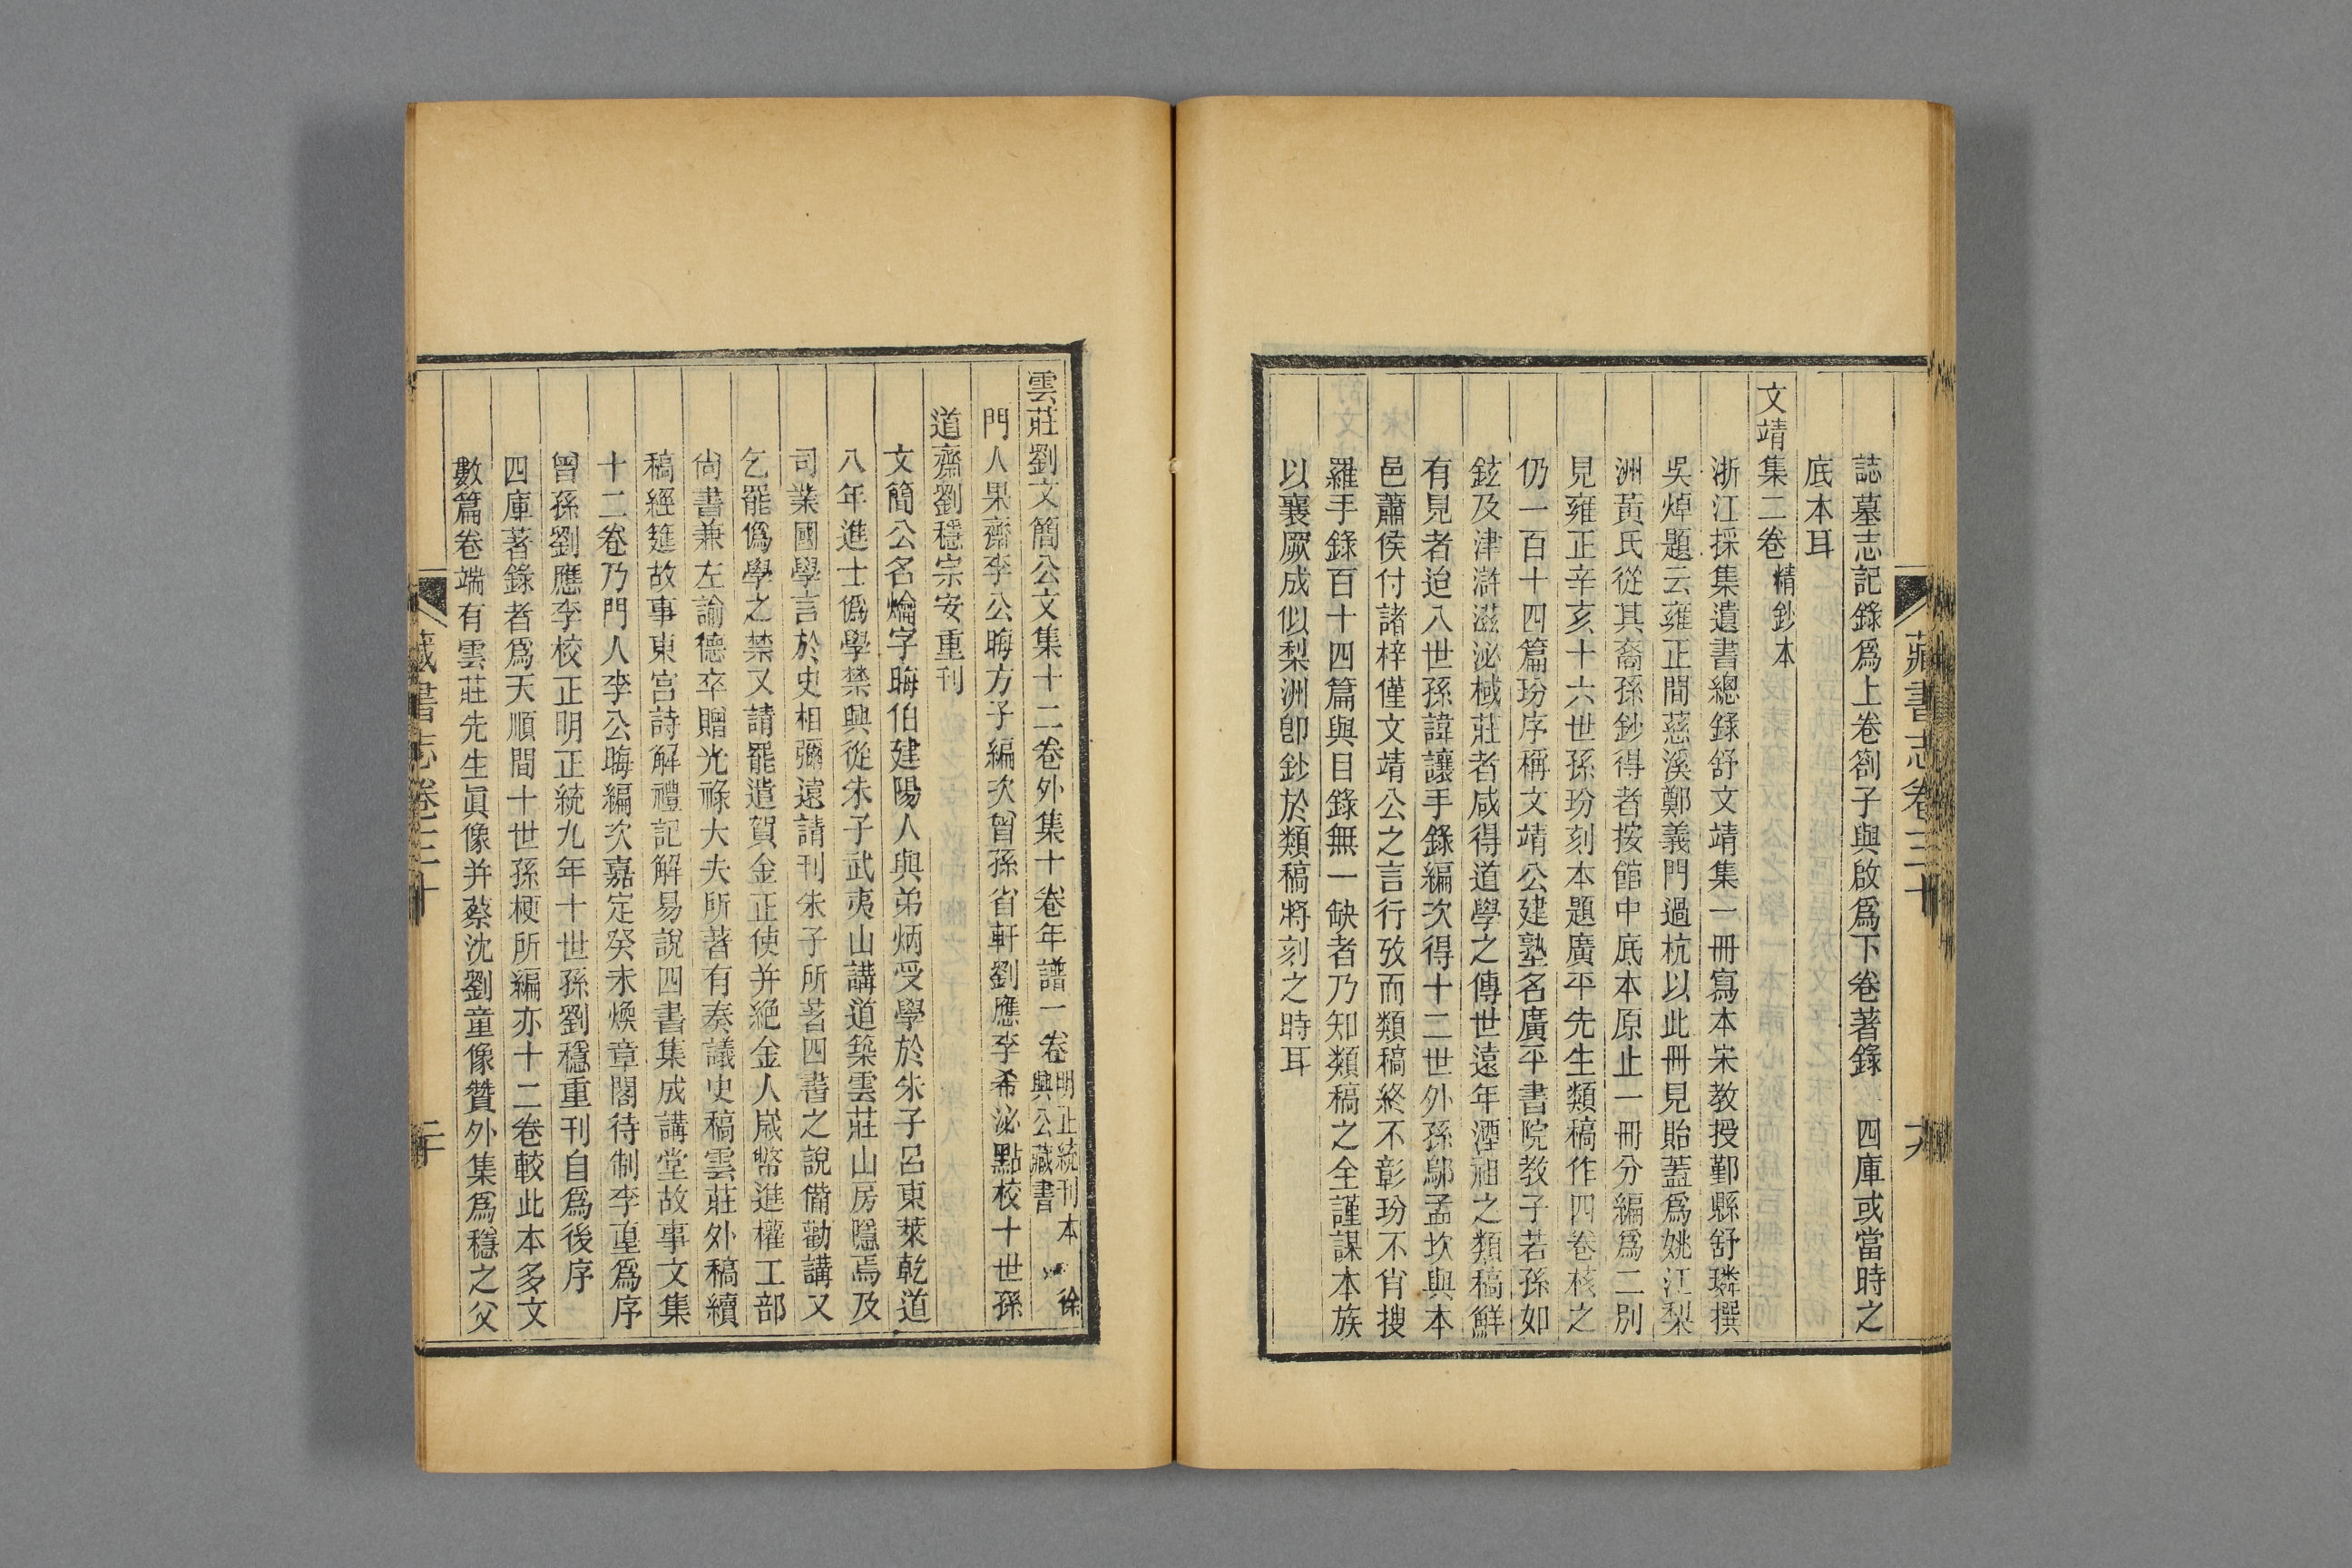 藏書志卷三十
誌墓志記錄爲上卷劄子與啟爲下卷著錄 四庫或當時之
底本耳
文靖集二卷 精鈔本
浙江採集遺書總錄舒文靖集一冊寫本宋教授鄞縣舒璘撰
吳焯題云雍正間慈溪鄭義門過杭以此冊見貽蓋爲姚江梨
洲黃氏從其裔孫鈔得者按館中底本原止一冊分編爲二別
見雍正辛亥十六世孫玢刻本題廣平先生類稿作四卷核之
仍一百十四篇玢序稱文靖公建塾名廣平書院教子若孫如
鉉及津滸滋泌棫莊者咸得道學之傳世遠年湮祖之類稿鮮
有見者迨八世孫諱讓手錄編次得十二世外孫鄔孟坎與本
邑蕭侯付諸梓僅文靖公之言行攷而類稿終不彰玢不肖搜
羅手錄百十四篇與目錄無一缺者乃知類稿之全謹謀本族
以襄厥成似梨洲卽鈔於類稿將刻之時耳
雲莊劉文簡公文集十二卷外集十卷年譜一卷 明正統刊本 徐
興公藏書
門人果齋李公晦方子編次曾孫省軒劉應李希泌點校十世孫
道齋劉穩宗安重刊
文簡公名爚字晦伯建陽人與弟炳受學於朱子呂東萊乾道
八年進士僞學禁興從朱子武夷山講道築雲莊山房隱焉及
司業國學言於史相彌遠請刊朱子所著四書之說備勸講又
乞罷僞學之禁又請罷遣賀金正使并絕金人歲幣進權工部
尚書兼左諭德卒贈光祿大夫所著有奏議史稿雲莊外稿續
稿經筵故事東宮詩解禮記解易說四書集成講堂故事文集
十二卷乃門人李公晦編次嘉定癸未煥章閣待制李壁爲序
曾孫劉應李校正明正統九年十世孫劉穩重刊自爲後序
四庫著錄者爲天順間十世孫梗所編亦十二卷較此本多文
數篇卷端有雲莊先生眞像并蔡沈劉童像贊外集爲穩之父
藏書志卷三十